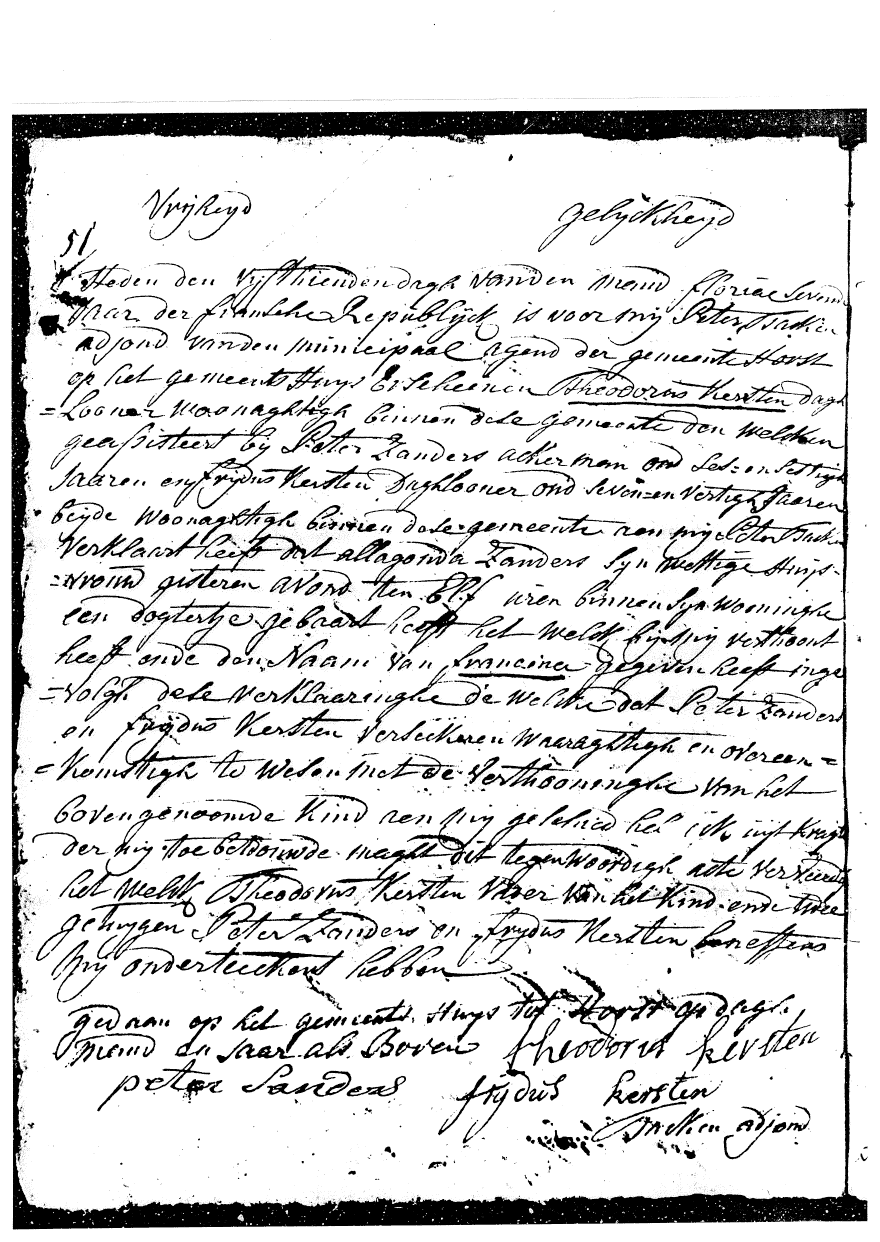 Vrijheyd gelijckheyd
51
Heden den Vyffthienden dagh vanden mand floriac sevend
Jaar der fransche Republijck is voor mij Peter Jacken
adjond vanden municipaal agend der gemeente Horst
op het gemeents Huys Erscheenen Theodorus Kersten dagh
=Looner woonaghtigh binnen dese gemeente den welcken
geassisteert bij Peter Zanders ackerman oud ses=en sestigh
Jaaren en frydus Kersten Daghlooner oud seven=en vertigh Jaaren
beyde woonaghtigh binnen dese gemeente aen mij Peter Jacken
Verklaart heeft dat allagonda Zanders syn wettige Huys=
=vrouw gisteren avond ten Elf uren binnen syn wooninghe
een dogtertje gebaart heeft het welck bij mij verthoont
heeft ende den Naam van francina gegeven heeft inge
=volgh dese verklaaringhe de welcke dat Peter Zanders
en frydus Kersten verseikeren waaraghtigh en overeen=
=Komstigh te wesen met de verthooninghe van het
bovengenoomde Kind aen mij geschied heb ick uyt kragte
der mij toebetrouwde maght dit tegenwoordigh acte verveerdigt
het welck Theodorus Kersten Vader van het Kind ende twee
getuygen Peter Zanders en frydus Kersten beneffens
Mij onderteickent hebben
gedaan op het gemeents Huys tot Horst op dagh
mand en Jaar als Boven theodorus kersten
peter Sanders frydus kersten
Jacken adjond